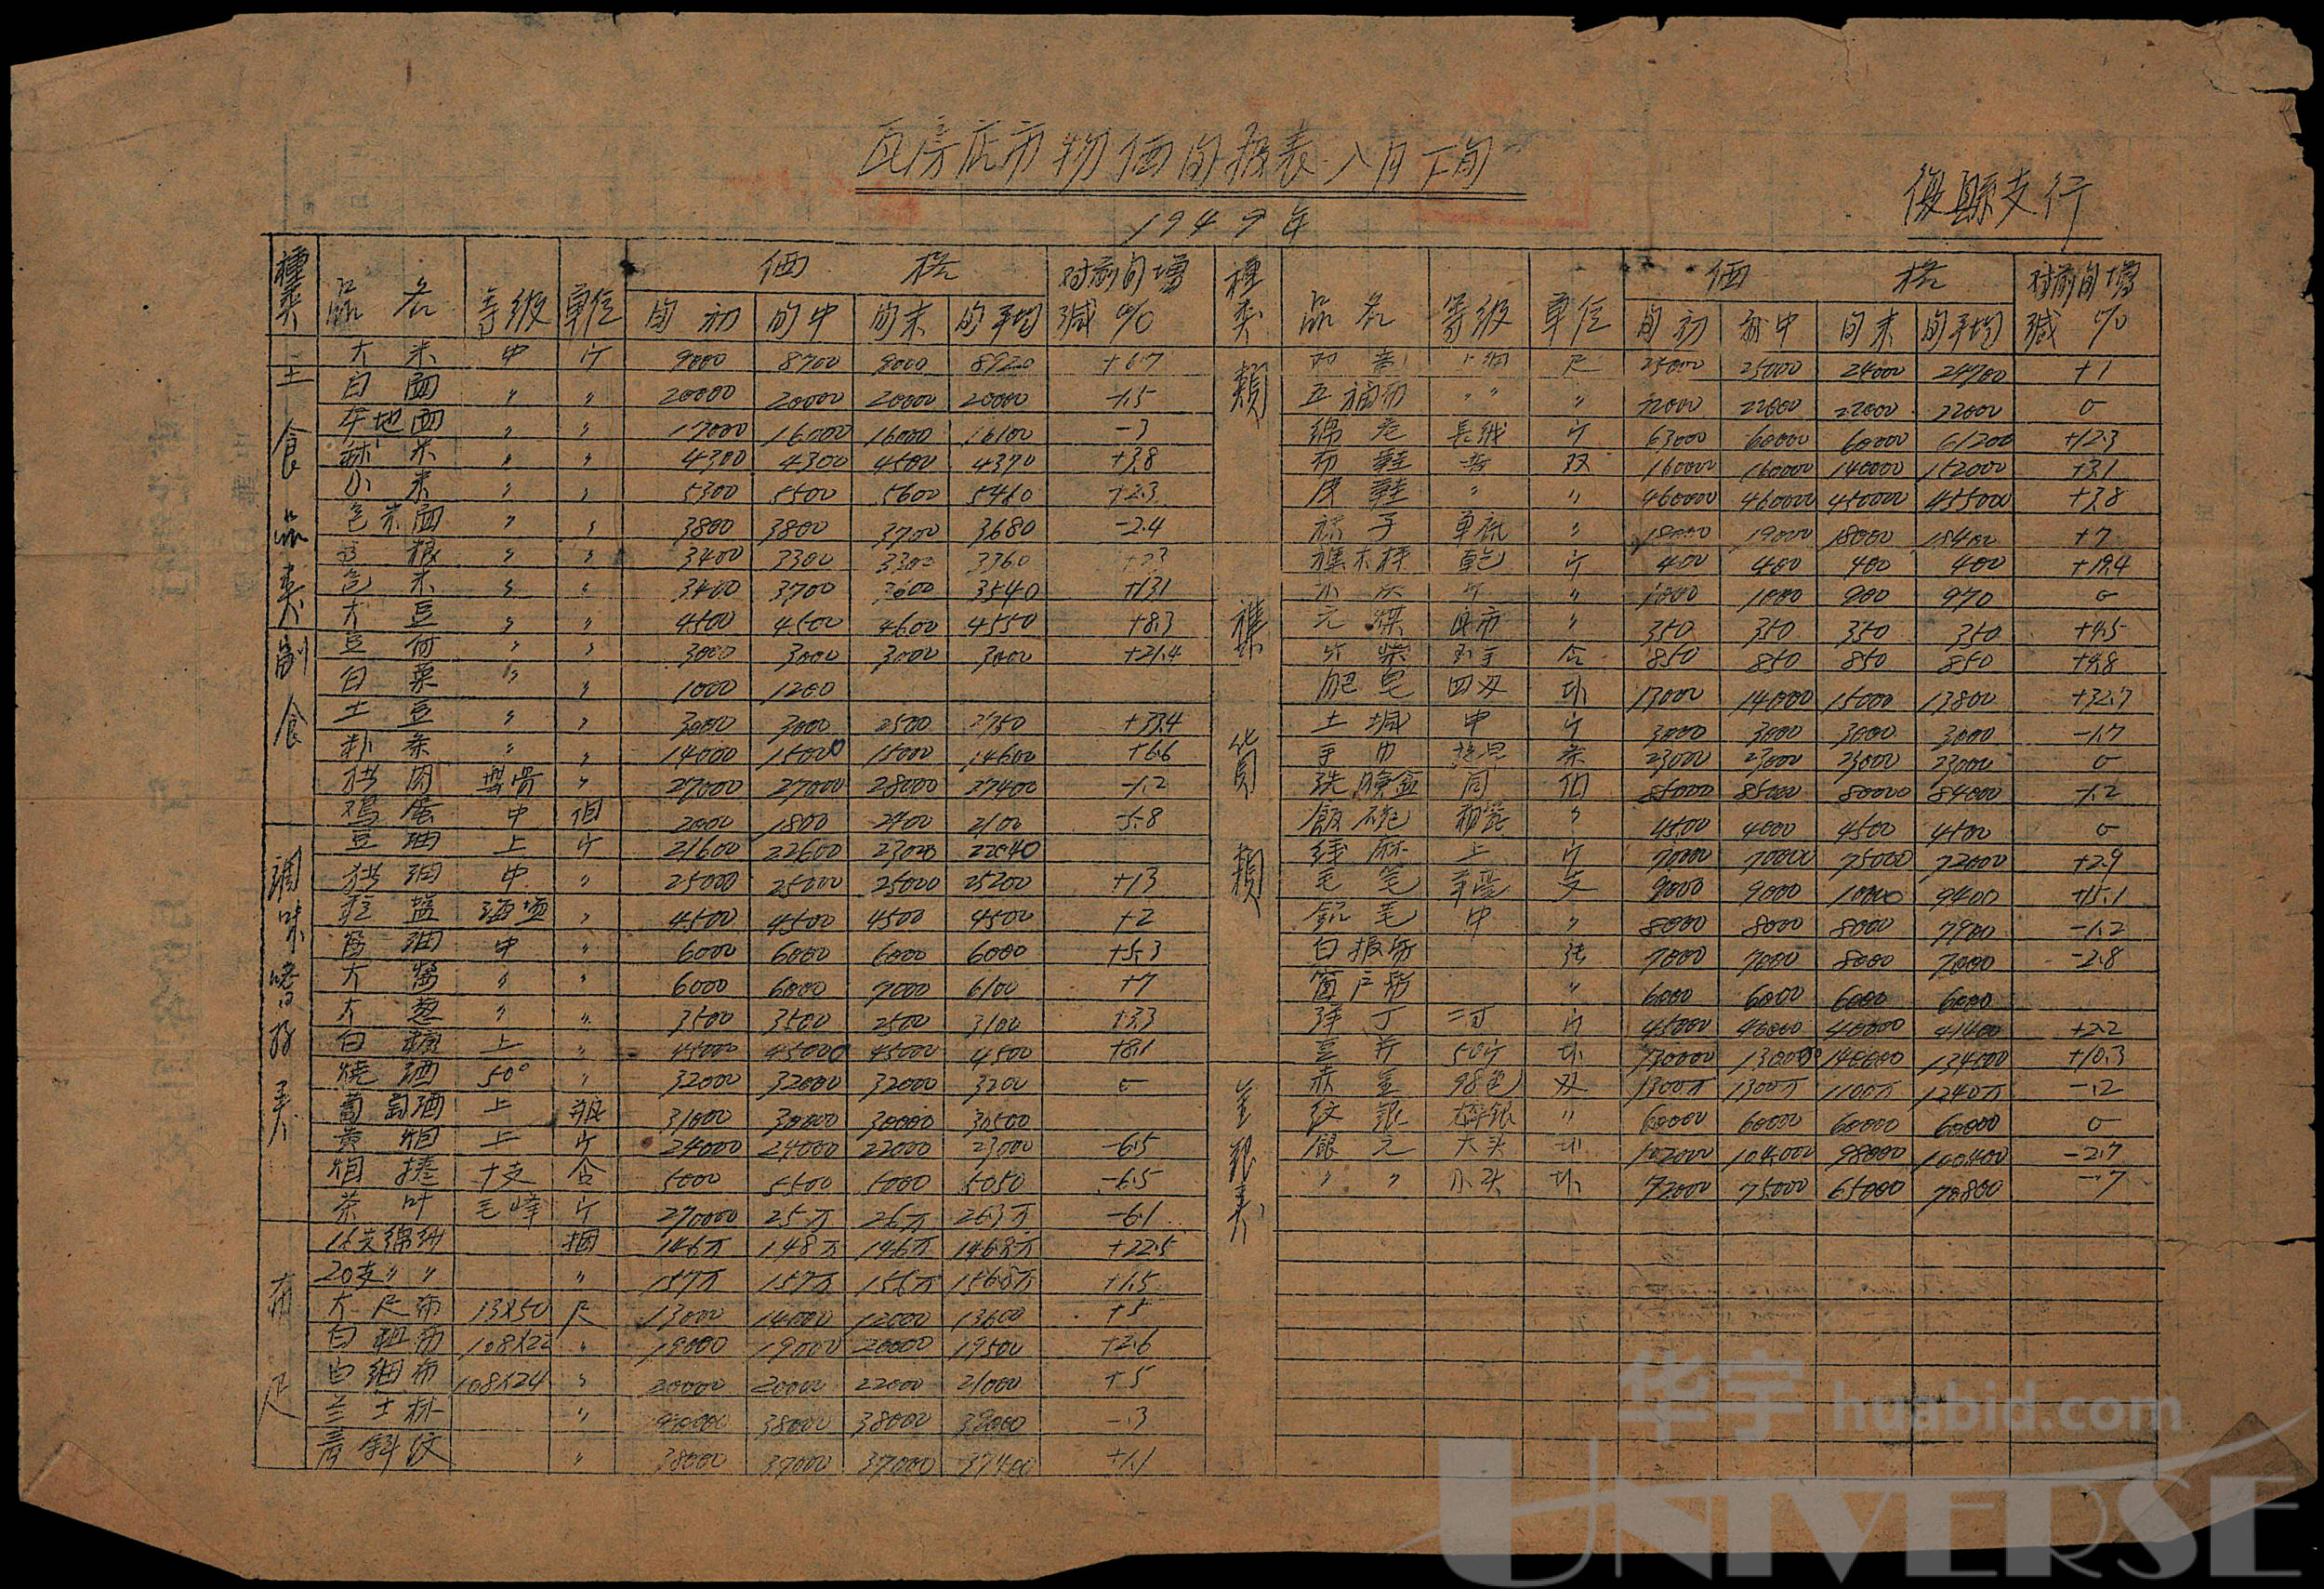 瓦房店市物価旬报表 八月下旬
1949年
復縣支行
種类 品名 等级 單位 価格 对前旬增减% 種类 品名 等级 單位 価格 对前旬增减%
旬初 旬中 旬末 旬平均 旬初 旬中 旬末 旬平均
主食品类
大米 中 斤 9000 8700 9000 8920 +0.7
白面 〃 〃 20000 20000 20000 20000 -1.5
〃 〃 17000 16000 16000 16100 -3
〃 〃 4300 4300 4500 4370 +3.8
小米 〃 〃 5300 5500 5600 5460 +2.3
包米面 〃 〃 3800 3800 3700 3680 -2.4
〃 〃 3400 3300 3300 3360
包米 〃 〃 3400 3700 3600 3540 +13.1
大豆 〃 〃 4500 4500 4600 4550 +8.3
副食
〃 〃 3000 3000 3000 3000 +21.4
白菜 〃 〃 1000 1200
土豆 〃 〃 3000 3000 2500 2750 +33.4
粉条 〃 〃 14000 15000 15000 14600 +6.6
猪肉 〃 27000 27000 28000 27400 -1.2
鸡蛋 中 個 2000 1800 2400 2100 -5.8
調味嗜好类
豆油 上 斤 21600 22600 23000 22040
猪油 中 〃 25000 25000 25000 25200 +1.3
〃 4500 4500 4500 4500 +2
中 〃 6000 6000 6000 6000 +5.3
大醬 〃 〃 6000 6000 7000 6100 +7
大葱 〃 〃 3500 3500 2500 3100 +3.3
白糖 上 〃 45000 45000 45000 4500 +8.1
燒酒 50° 〃 32000 32000 32000 3200 0
葡萄酒 上 瓶 31000 30000 30000 30500
黄烟 上 斤 24000 24000 22000 23000 -6.5
烟捲 十支 合 5000 5500 5000 5050 -6.5
茶叶 毛峰 斤 270000 25万 26万 26.3万 -6.1
布疋
16支綿紗 捆 146万 148万 146万 146.8万 +22.5
20支〃〃 〃 157万 157万 156万 156.8万 +1.5
大尺布 13X50 尺 13000 14000 12000 13600 +5
白粗布 108X22 〃 19000 19000 20000 19500 +2.6
白細布 108X24 〃 20000 20000 22000 21000 +5
〃 40000 38000 38000 39000 -.3
青斜纹 〃 38000 37000 37000 37400 +1.1
類
尺 25000 25000 24000 24700 +1
五福布 〃〃 〃 22000 22000 22000 22000 0
長绒 斤 63000 60000 60000 61200 +12.3
布鞋 双 160000 160000 140000 152000 +3.1
皮鞋 〃 〃 460000 460000 450000 455000 +3.8
襪子 單底 〃 18000 19000 18000 18400 +7
雜貨類
斤 400 400 400 400 +19.4
〃 1000 1000 900 970 0
元煤 〃 350 350 350 350 +4.5
火柴 合 850 850 850 850 +4.8
肥皂 四双 块 13000 14000 15000 13800 +32.7
土堿 中 斤 3000 3000 3000 3000 -1.7
手巾 条 23000 23000 23000 23000 0
洗臉盆 個 85000 85000 80000 84000 -1.2
飯碗 〃 4500 4000 4500 4500 0
线麻 上 斤 70000 70000 75000 72000 +2.9
毛笔 支 9000 9000 10000 9400 +15.1
鉛笔 中 〃 8000 8000 8000 7900 -1.2
白报纸 張 7000 7000 8000 7000 -2.8
窗户纸 〃 6000 6000 6000 6000
洋丁 二寸 斤 45000 40000 40000 41400 +2.2
豆片 50斤 块 130000 130000 140000 134000 +10.3
金銀类
赤金 98色 双 1300万 1300万 1100万 1240万 -.12
纹銀 〃 60000 60000 60000 60000 0
銀元 大头 块 102000 104000 98000 100400 -2.7
〃〃 小头 块 72000 75000 65000 70800 -7
华宇 huabid.com
UNIVERSE